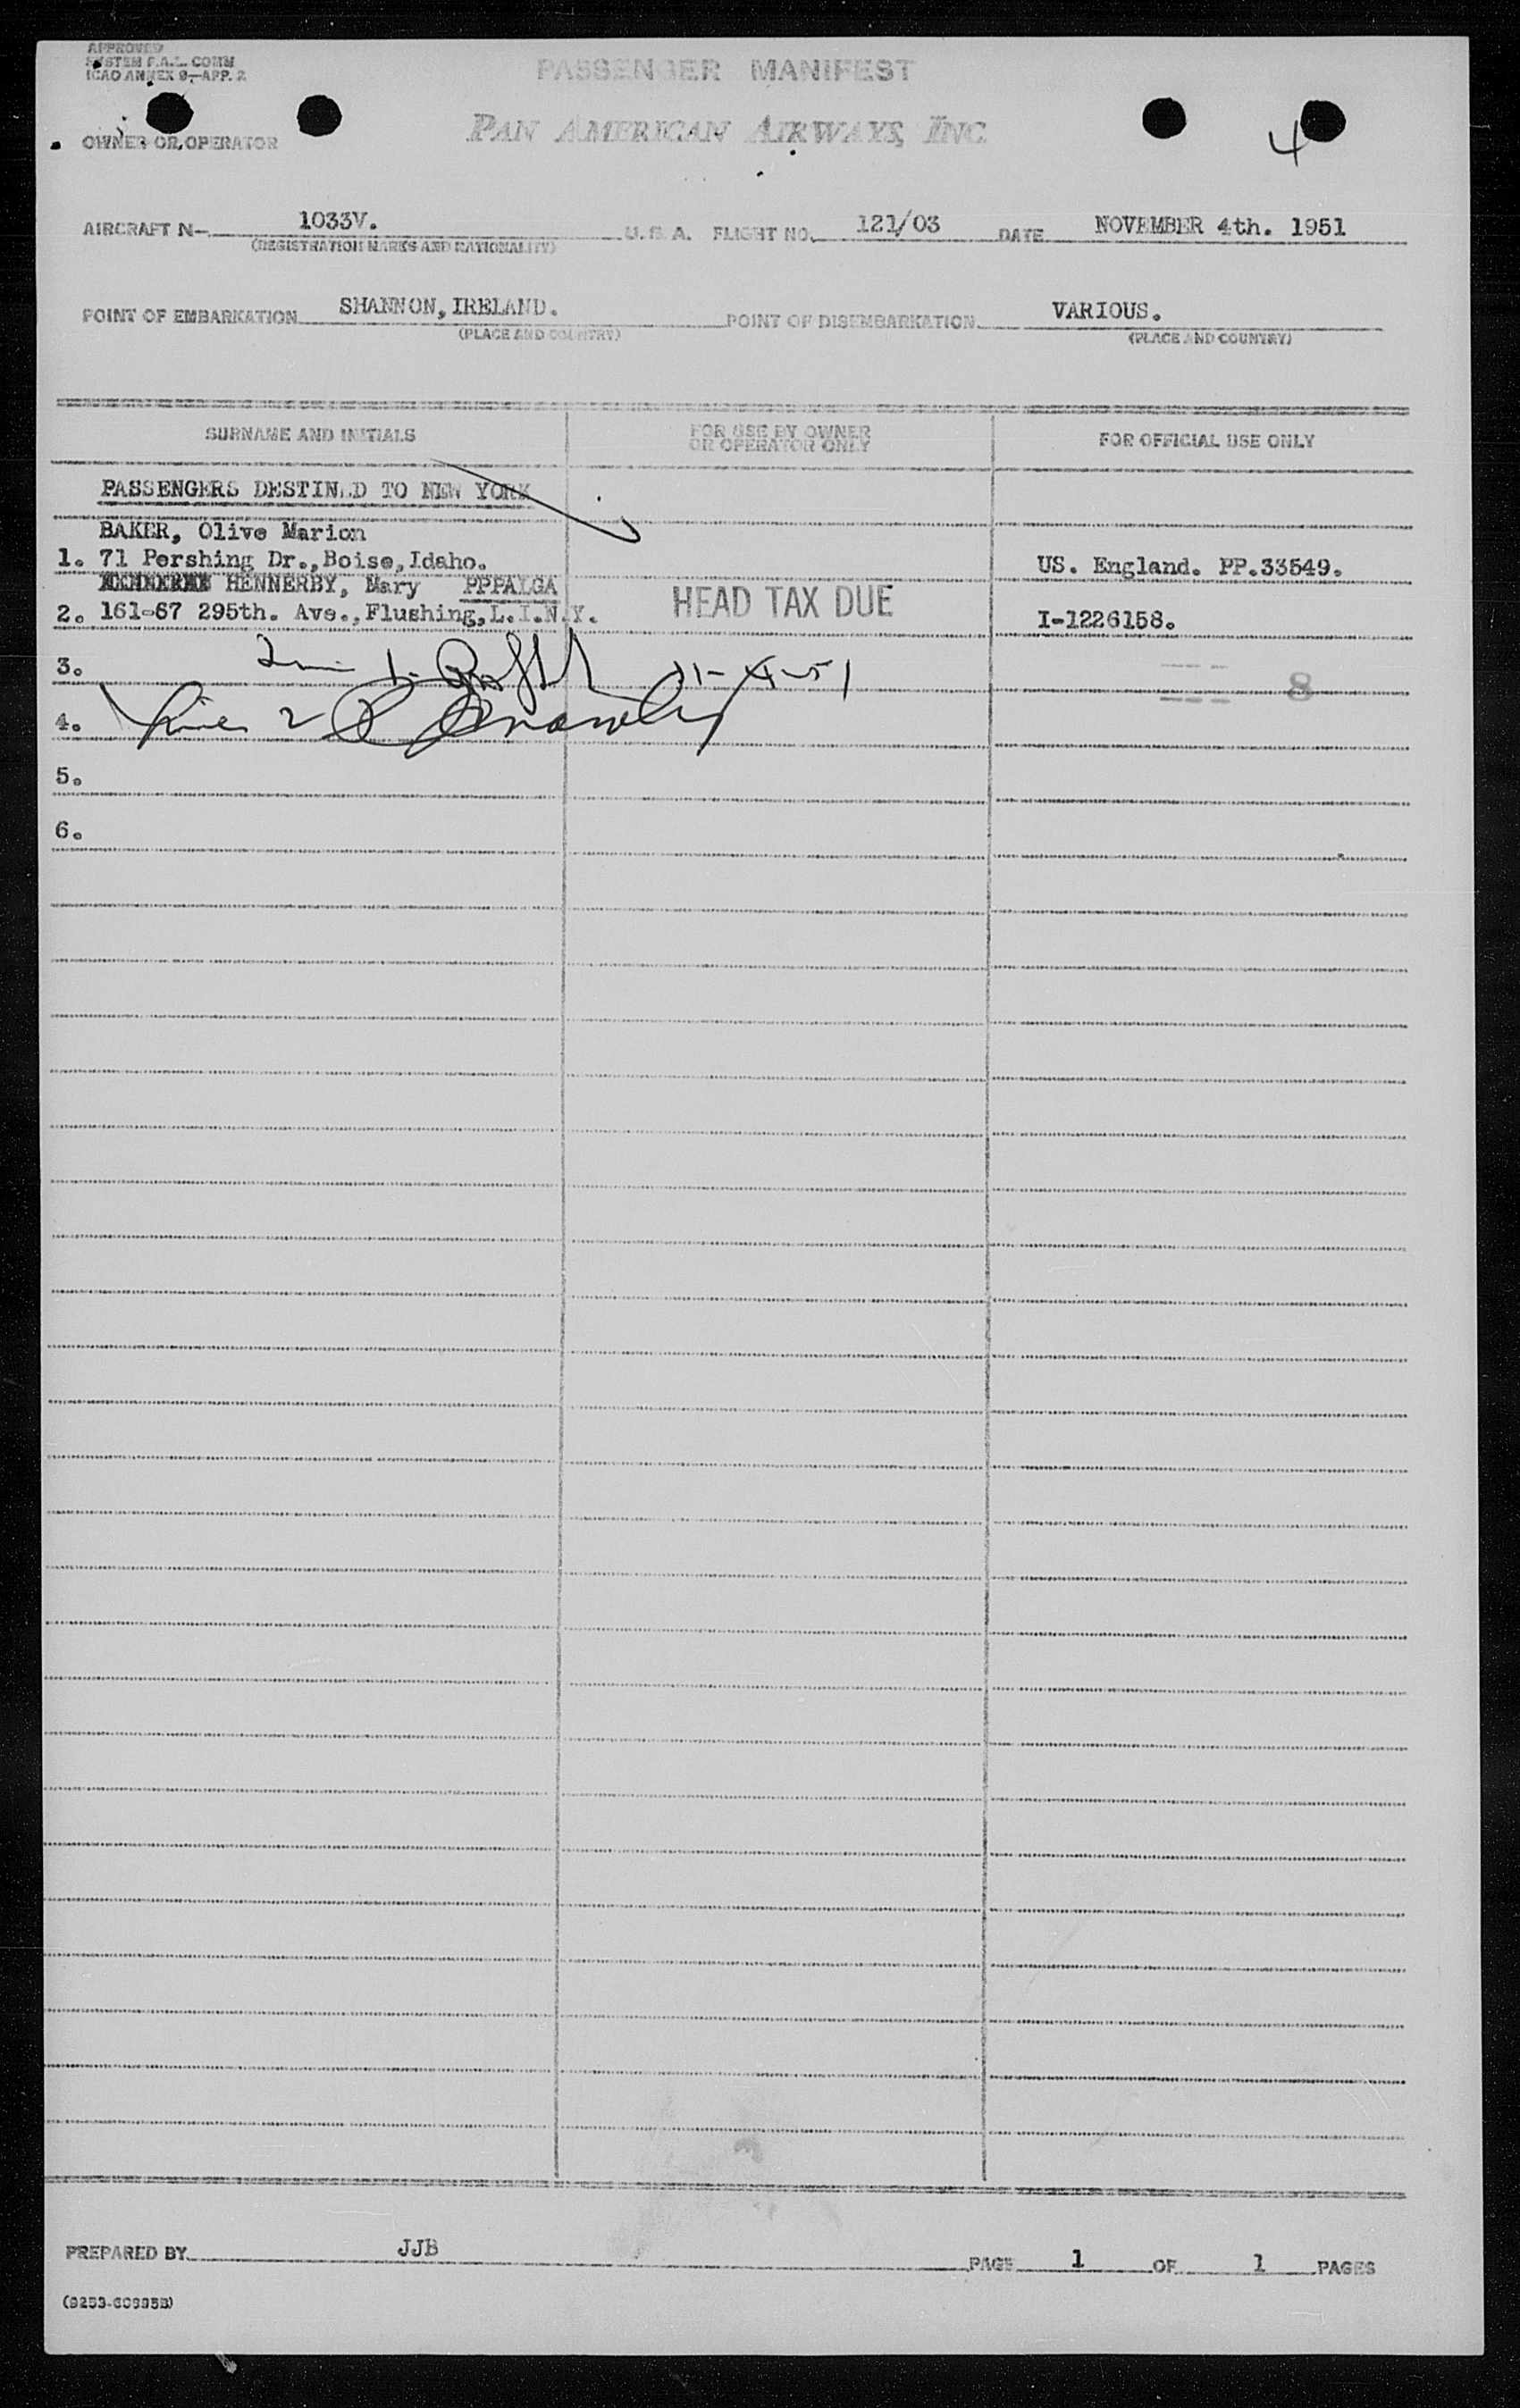 APPROVED
SYSTEM F.A.L. COMM
ICAO ANNEX 9,-APP. 2
PASSENGER MANIFEST
OWNER OR OPERATOR
PAN AMERICAN AIRWAYS, INC
4
AIRCRAFT N- 1033V. U.S.A. FLIGHT NO. 121/03 DATE NOVEMBER 4th. 1951
(REGISTRATION MARKS AND NATIONALITY)
POINT OF EMBARKATION SHANNON, IRELAND. POINT OF DISEMBARKATION VARIOUS.
(PLACE AND COUNTRY) (PLACE AND COUNTRY)
SURNAME AND INITIALS FOR USE BY OWNER OR OPERATOR ONLY FOR OFFICIAL USE ONLY
PASSENGERS DESTINED TO NEW YORK
BAKER, Olive Marion
1. 71 Pershing Dr., Boise, Idaho. US. England. PP.33549.
HENNERBY, Mary PPPALGA
2. 161-67 295th. Ave., Flushing, L.I.N.Y. HEAD TAX DUE I-1226158.
3. 1. 11-4-51 8
4. Line 2
5.
6.
PREPARED BY JJB PAGE 1 OF 1 PAGES
(9253-60995B)